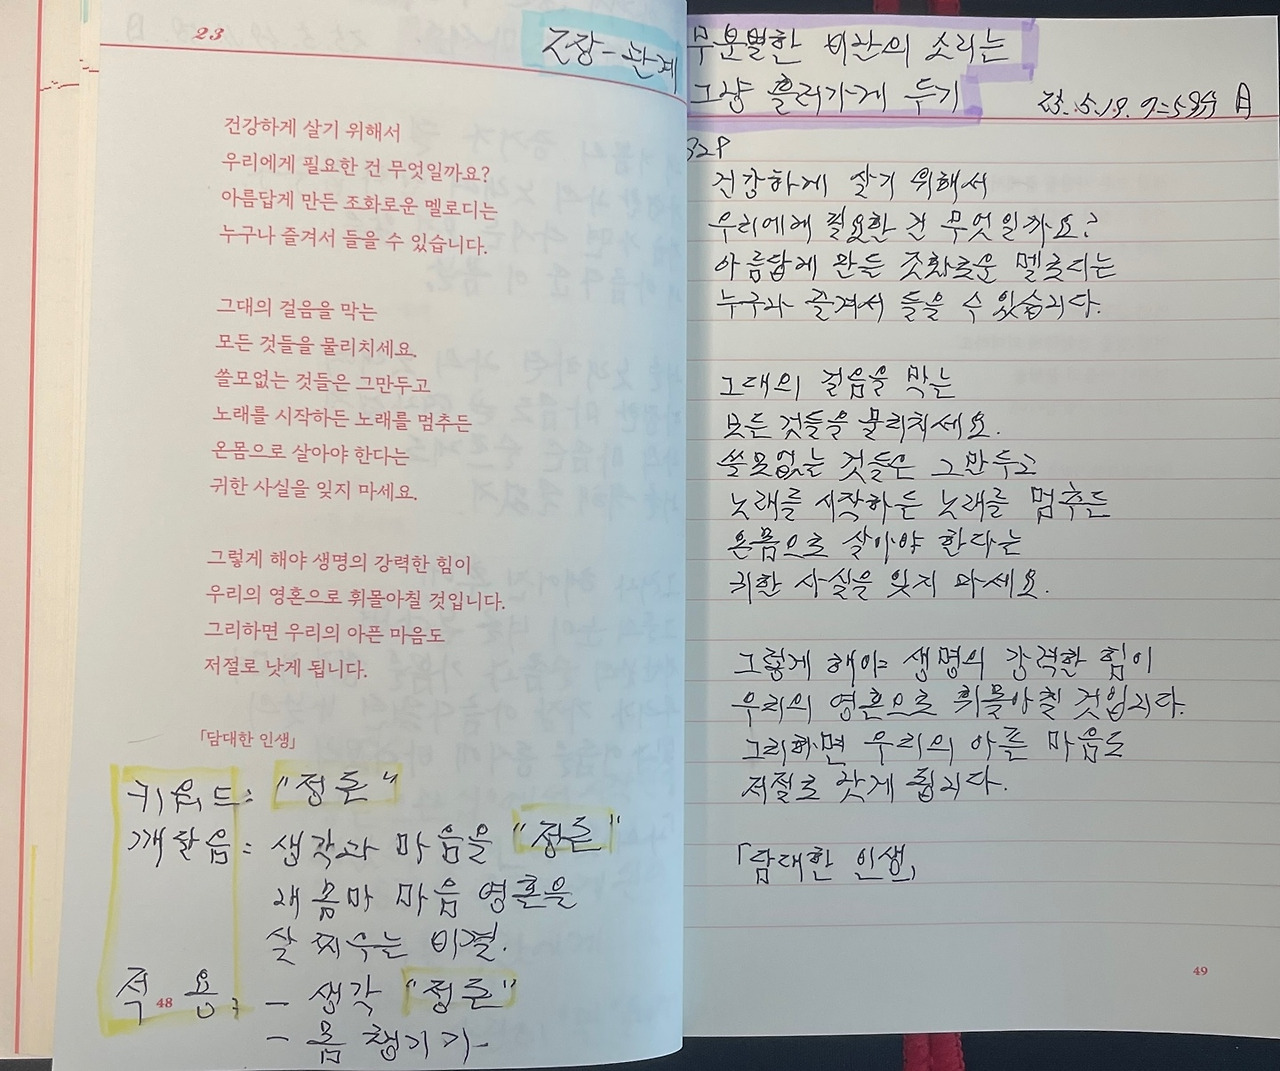 23
2장-관계
건강하게 살기 위해서
우리에게 필요한 건 무엇일까요?
아름답게 만든 조화로운 멜로디는
누구나 즐겨서 들을 수 있습니다.
그대의 걸음을 막는
모든 것들을 물리치세요.
쓸모없는 것들은 그만두고
노래를 시작하든 노래를 멈추든
온몸으로 살아야 한다는
귀한 사실을 잊지 마세요.
그렇게 해야 생명의 강력한 힘이
우리의 영혼으로 휘몰아칠 것입니다.
그리하면 우리의 아픈 마음도
저절로 낫게 됩니다.
「담대한 인생」
키워드: "정돈"
깨달음: 생각과 마음을 "정돈"
내 몸과 마음 영혼을
살찌우는 비결.
적용: - 생각 "정돈"
- 몸 챙기기
48
무분별한 비난의 소리는
그냥 흘러가게 두기
23.5.19. 금
32P
건강하게 살기 위해서
우리에게 필요한 건 무엇일까요?
아름답게 만든 조화로운 멜로디는
누구나 즐겨서 들을 수 있습니다.
그대의 걸음을 막는
모든 것들을 물리치세요.
쓸모없는 것들은 그만두고
노래를 시작하든 노래를 멈추든
온몸으로 살아야 한다는
귀한 사실을 잊지 마세요.
그렇게 해야 생명의 강력한 힘이
우리의 영혼으로 휘몰아칠 것입니다.
그리하면 우리의 아픈 마음도
저절로 낫게 됩니다.
「담대한 인생」
49